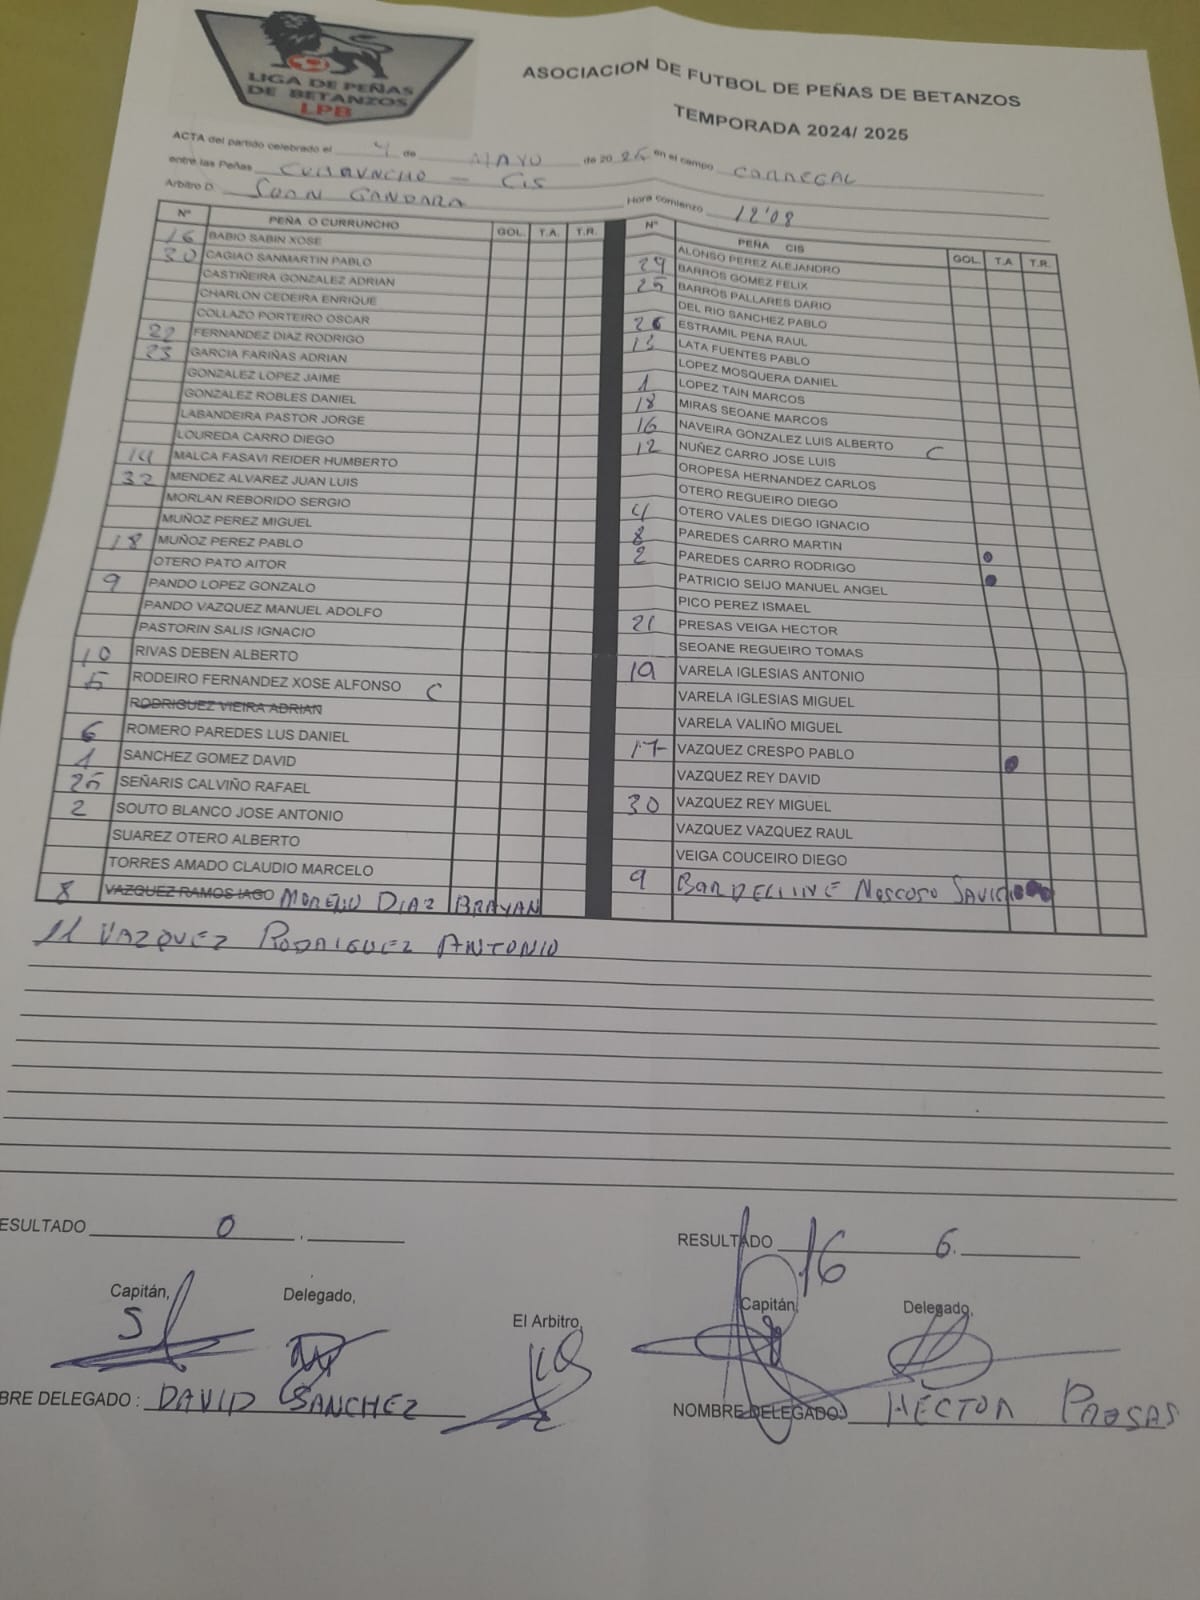 LIGA DE PEÑAS
DE BETANZOS
LPB
ASOCIACION DE FUTBOL DE PEÑAS DE BETANZOS
TEMPORADA 2024/ 2025
ACTA del partido celebrado el 4 de MAYO de 2025 en el campo CARREGAL
entre las Peñas CURRUNCHO - CIS
Arbitro D. JUAN GANDARA Hora comienzo 12'08
Nº PEÑA O CURRUNCHO GOL. T.A. T.R.
16 BABIO SABIN XOSE
30 CAGIAO SANMARTIN PABLO
CASTIÑEIRA GONZALEZ ADRIAN
CHARLON CEDEIRA ENRIQUE
COLLAZO PORTEIRO OSCAR
22 FERNANDEZ DIAZ RODRIGO
23 GARCIA FARIÑAS ADRIAN
GONZALEZ LOPEZ JAIME
GONZALEZ ROBLES DANIEL
LABANDEIRA PASTOR JORGE
LOUREDA CARRO DIEGO
14 MALCA FASAVI REIDER HUMBERTO
32 MENDEZ ALVAREZ JUAN LUIS
MORLAN REBORIDO SERGIO
MUÑOZ PEREZ MIGUEL
18 MUÑOZ PEREZ PABLO
OTERO PATO AITOR
9 PANDO LOPEZ GONZALO
PANDO VAZQUEZ MANUEL ADOLFO
PASTORIN SALIS IGNACIO
10 RIVAS DEBEN ALBERTO
5 RODEIRO FERNANDEZ XOSE ALFONSO C
RODRIGUEZ VIEIRA ADRIAN
6 ROMERO PAREDES LUS DANIEL
1 SANCHEZ GOMEZ DAVID
25 SEÑARIS CALVIÑO RAFAEL
2 SOUTO BLANCO JOSE ANTONIO
SUAREZ OTERO ALBERTO
TORRES AMADO CLAUDIO MARCELO
8 VAZQUEZ RAMOS IAGO MORENO DIAZ BRAYAN
11 VAZQUEZ RODRIGUEZ ANTONIO
Nº PEÑA CIS GOL. T.A T.R.
ALONSO PEREZ ALEJANDRO
29 BARROS GOMEZ FELIX
25 BARROS PALLARES DARIO
DEL RIO SANCHEZ PABLO
26 ESTRAMIL PENA RAUL
13 LATA FUENTES PABLO
LOPEZ MOSQUERA DANIEL
1 LOPEZ TAIN MARCOS
18 MIRAS SEOANE MARCOS
16 NAVEIRA GONZALEZ LUIS ALBERTO C
12 NUÑEZ CARRO JOSE LUIS
OROPESA HERNANDEZ CARLOS
OTERO REGUEIRO DIEGO
4 OTERO VALES DIEGO IGNACIO
8 PAREDES CARRO MARTIN
2 PAREDES CARRO RODRIGO
PATRICIO SEIJO MANUEL ANGEL
PICO PEREZ ISMAEL
21 PRESAS VEIGA HECTOR
SEOANE REGUEIRO TOMAS
19 VARELA IGLESIAS ANTONIO
VARELA IGLESIAS MIGUEL
VARELA VALIÑO MIGUEL
17 VAZQUEZ CRESPO PABLO
VAZQUEZ REY DAVID
30 VAZQUEZ REY MIGUEL
VAZQUEZ VAZQUEZ RAUL
VEIGA COUCEIRO DIEGO
9 MOSCOSO
ESULTADO 0
RESULTADO 16 6.
Capitán, Delegado,
El Arbitro,
Capitán, Delegado,
BRE DELEGADO : DAVID SANCHEZ
NOMBRE DELEGADO: HÉCTOR PRESAS